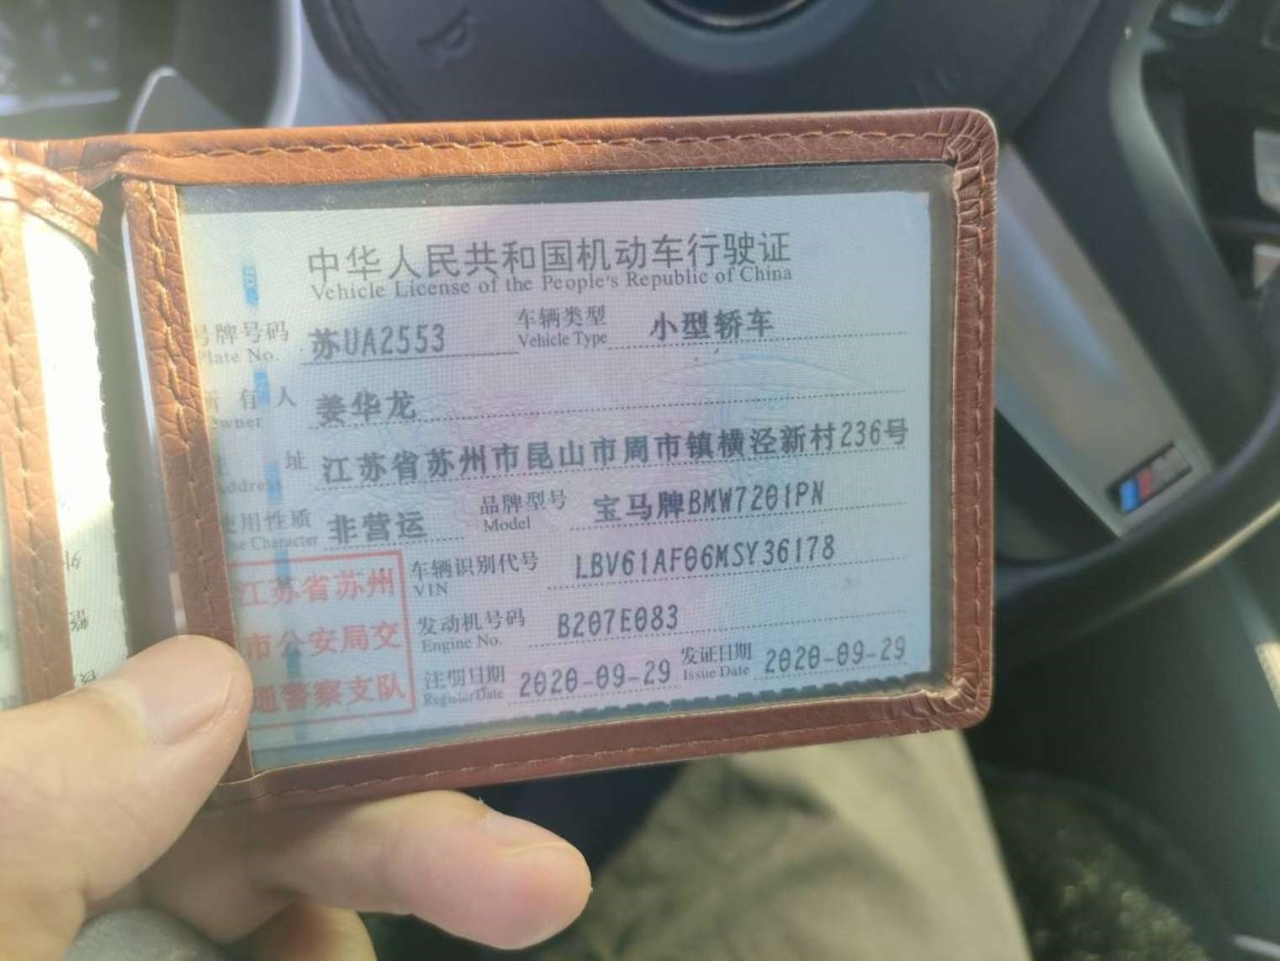 中华人民共和国机动车行驶证
Vehicle License of the People's Republic of China
号牌号码 苏UA2553 车辆类型 小型轿车
Plate No. Vehicle Type
所有人 姜华龙
Owner
址 江苏省苏州市昆山市周市镇横泾新村236号
Address
使用性质 非营运 品牌型号 宝马牌BMW7201PN
Use Character Model
车辆识别代号 LBV61AF06MSY36178
VIN
发动机号码 B207E083
Engine No.
注册日期 2020-09-29 发证日期 2020-09-29
Register Date Issue Date
江苏省苏州
市公安局交
通警察支队